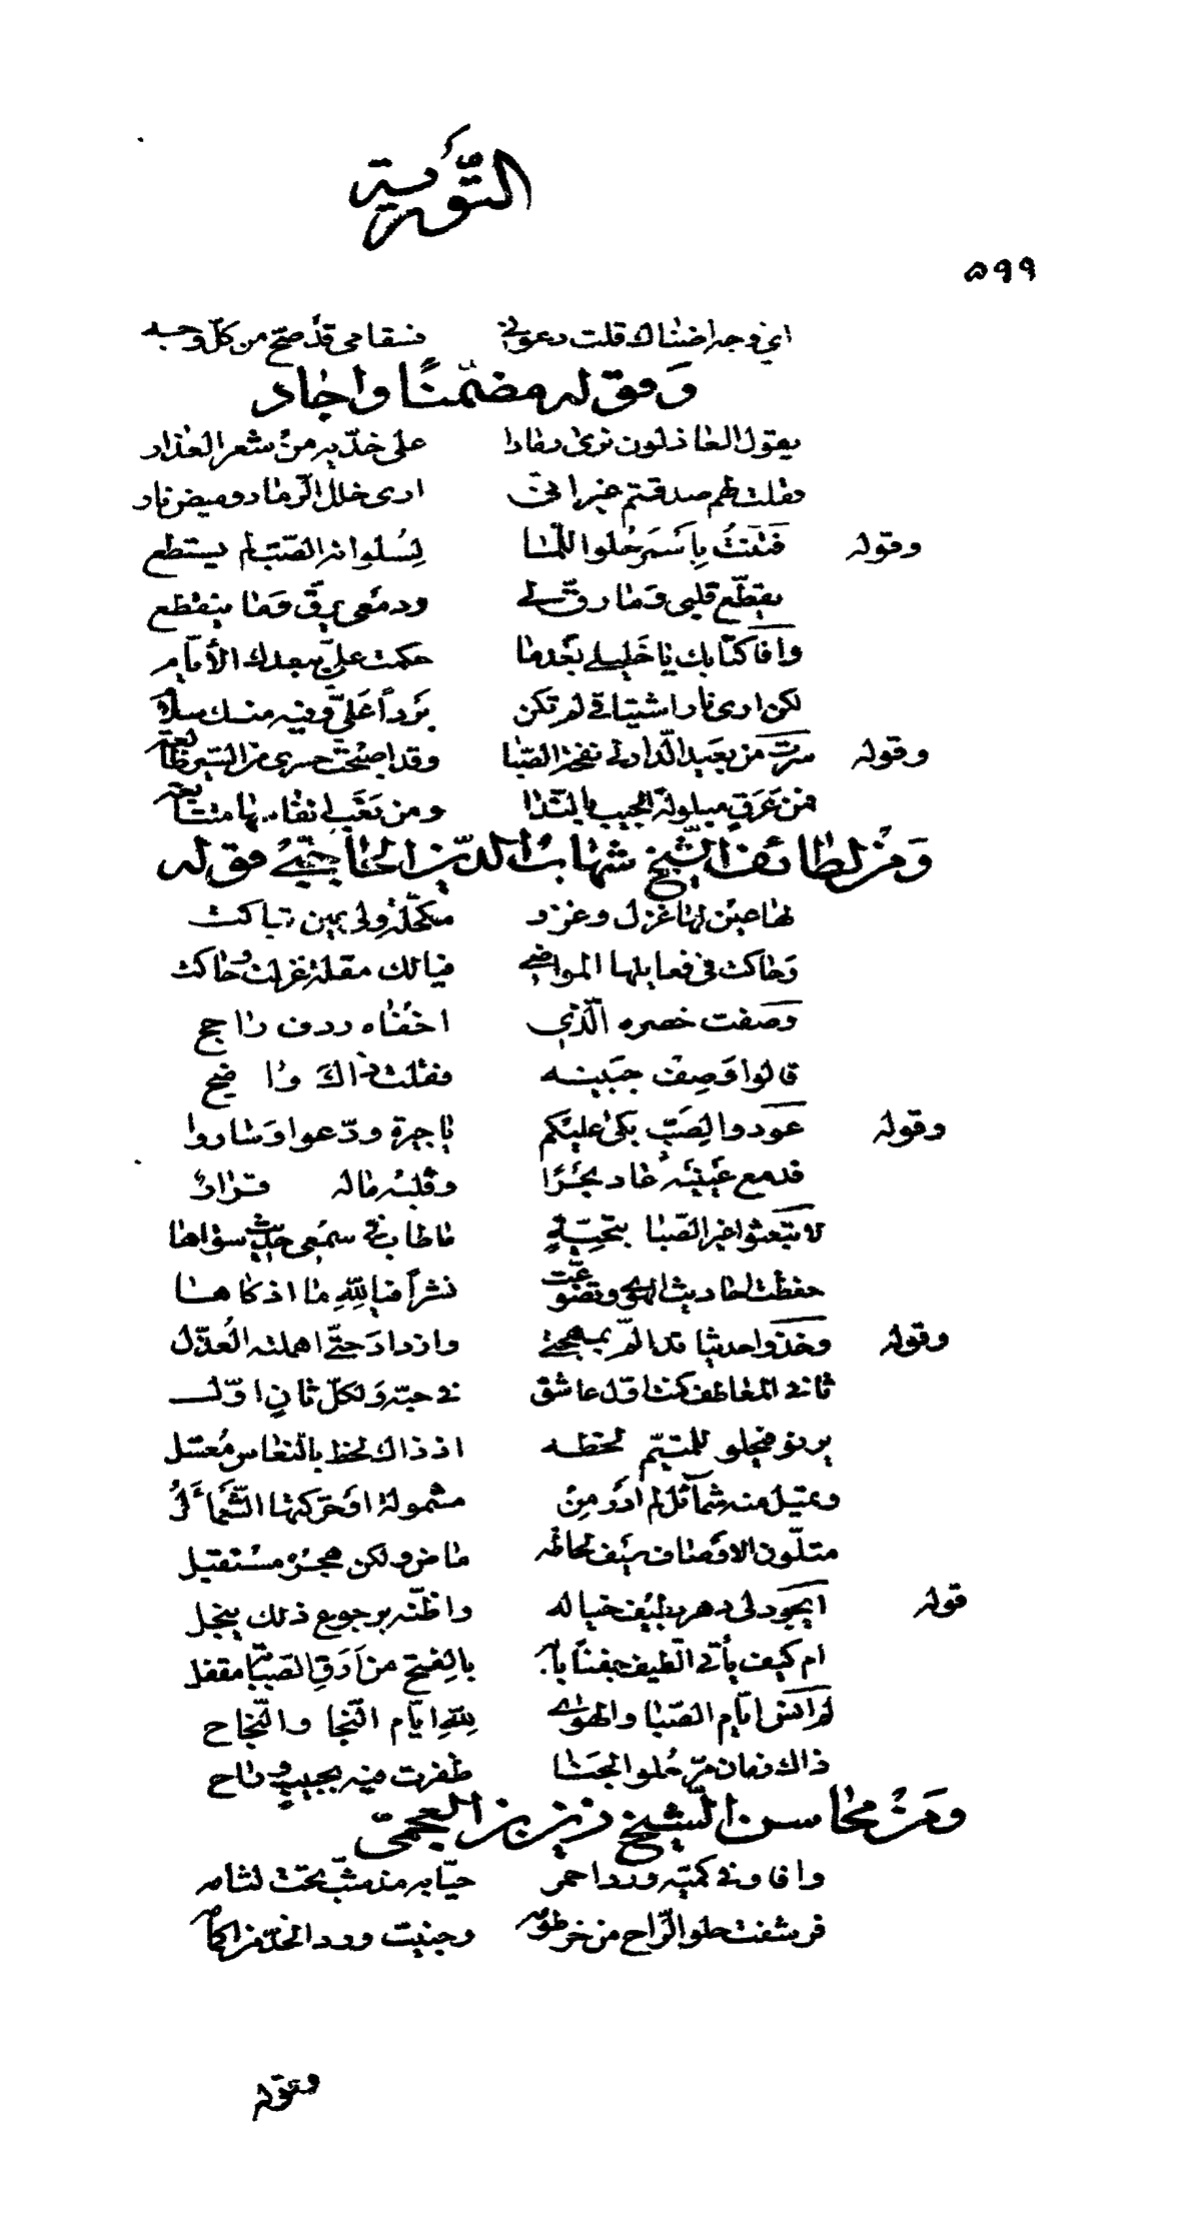 التَّوْرية
٥٩٩
اي وجه اضناك قلت دعوني فسقامي قد صح من كلّ وجه
وَقوله مضمّنًا واجاد
يقول العاذلون نرى رمادا على خدّيه من شعر العذار
فقلت لهم صدقتم غير اني ارى خلل الرّماد وميض نار
وقوله فتنتُ بِأَسْمَر حُلو اللّمَا لِسُلوانه الصّبّ لم يستطع
يقطّع قلبي وَما رقّ لي ودمعي يرقّ وَما ينقطع
وافا كتابك يا خَليلي بَعْدما حكمت عليّ ببعدك الأيّام
لكن ارى نار اشتياقي لم تكن بَرْداً عَليّ وفيه منك سلام
وقوله سرَت من بعيد الدّار لي نفحة الصّبا وقد اصبحت حسرى من السّير ظالعه
فمن عَرَقٍ مبلولة الجيب بالنّدا ومن تَعَبٍ انفاسها متتابعه
وَمن لطائف الشّيخ شهاب الدّين الحاجبيّ قوله
لها عين لها غزل وغزو مكحّلة ولي عين تباكت
وَحاكت في فعايلها المواضي فيالك مقلة غزلت وحاكت
وَصفت خصره الّذي اخفاه ردف راجح
قالوا وَصِف جَبينه فقلت ذاك واضح
وقوله عَودوا لِصَبّ بكى عليكم يا جيرة ودّعوا وَساروا
فدمع عَينيْه عاد بحْرًا وقلبُه ماله قرار
لا تبعثوا غير الصّبا بتحيّةٍ ما طاب في سمعي حديث سواها
حفظت احاديث الهوى وتضوّعت نشراً فيا لِلّهِ ما اذكاها
وقوله وَخذوا حديثا قد المّ بمهجتي وازداد حَتّى اهملته العُذّل
ثاني المعاطف كنت اوّل عاشق في حبّه وَلكلّ ثانٍ اوّل
يرنو فيحلو للمتيّم لحظه اذ ذاك لحظ بالنّعاس مُعسّل
ويميل منه شمآئل لم ادر مِن مشمولة اوْ حَرّكتها الشّمأَلُ
متلوّن الاوْصاف سيْف لحاظه ماض ولكن هجره مسْتقبل
قوله ايَجود لي دهر بطيْف خياله واظنّه برجوع ذلك يبخل
ام كيف يأتي الطّيف جفناً بابه بالفتح من اَرَقِ الصّبابة مقفل
لم انس ايّام الصّبا والهوى لِلّهِ ايّام النّجا والنّجاح
ذاك زمان مرّ حُلو الجَنا ظفرت فيه بحبيبٍ وراح
ومن محاسن الشّيخ زين بن العجميّ
وافا وفي كمّيه ورد احمر حيّا به مذ شبّ تحت لثامه
فرشفت حلو الرّاح من خرطومه وجنيت ورد الخدّ من اكمامه
وقوله